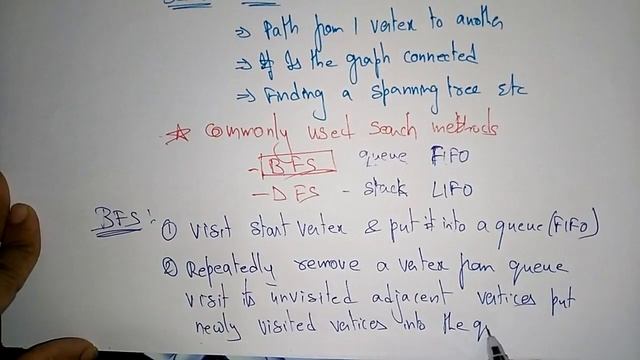 ⇒ Path from 1 vertex to another
⇒ Is the graph connected
⇒ Finding a spanning tree etc
★ Commonly used search methods
- BFS queue FIFO
- DFS - stack LIFO
BFS: ① visit start vertex & put it into a queue (FIFO)
② Repeatedly remove a vertex from queue
visit its unvisited adjacent vertices put
newly visited vertices into the q